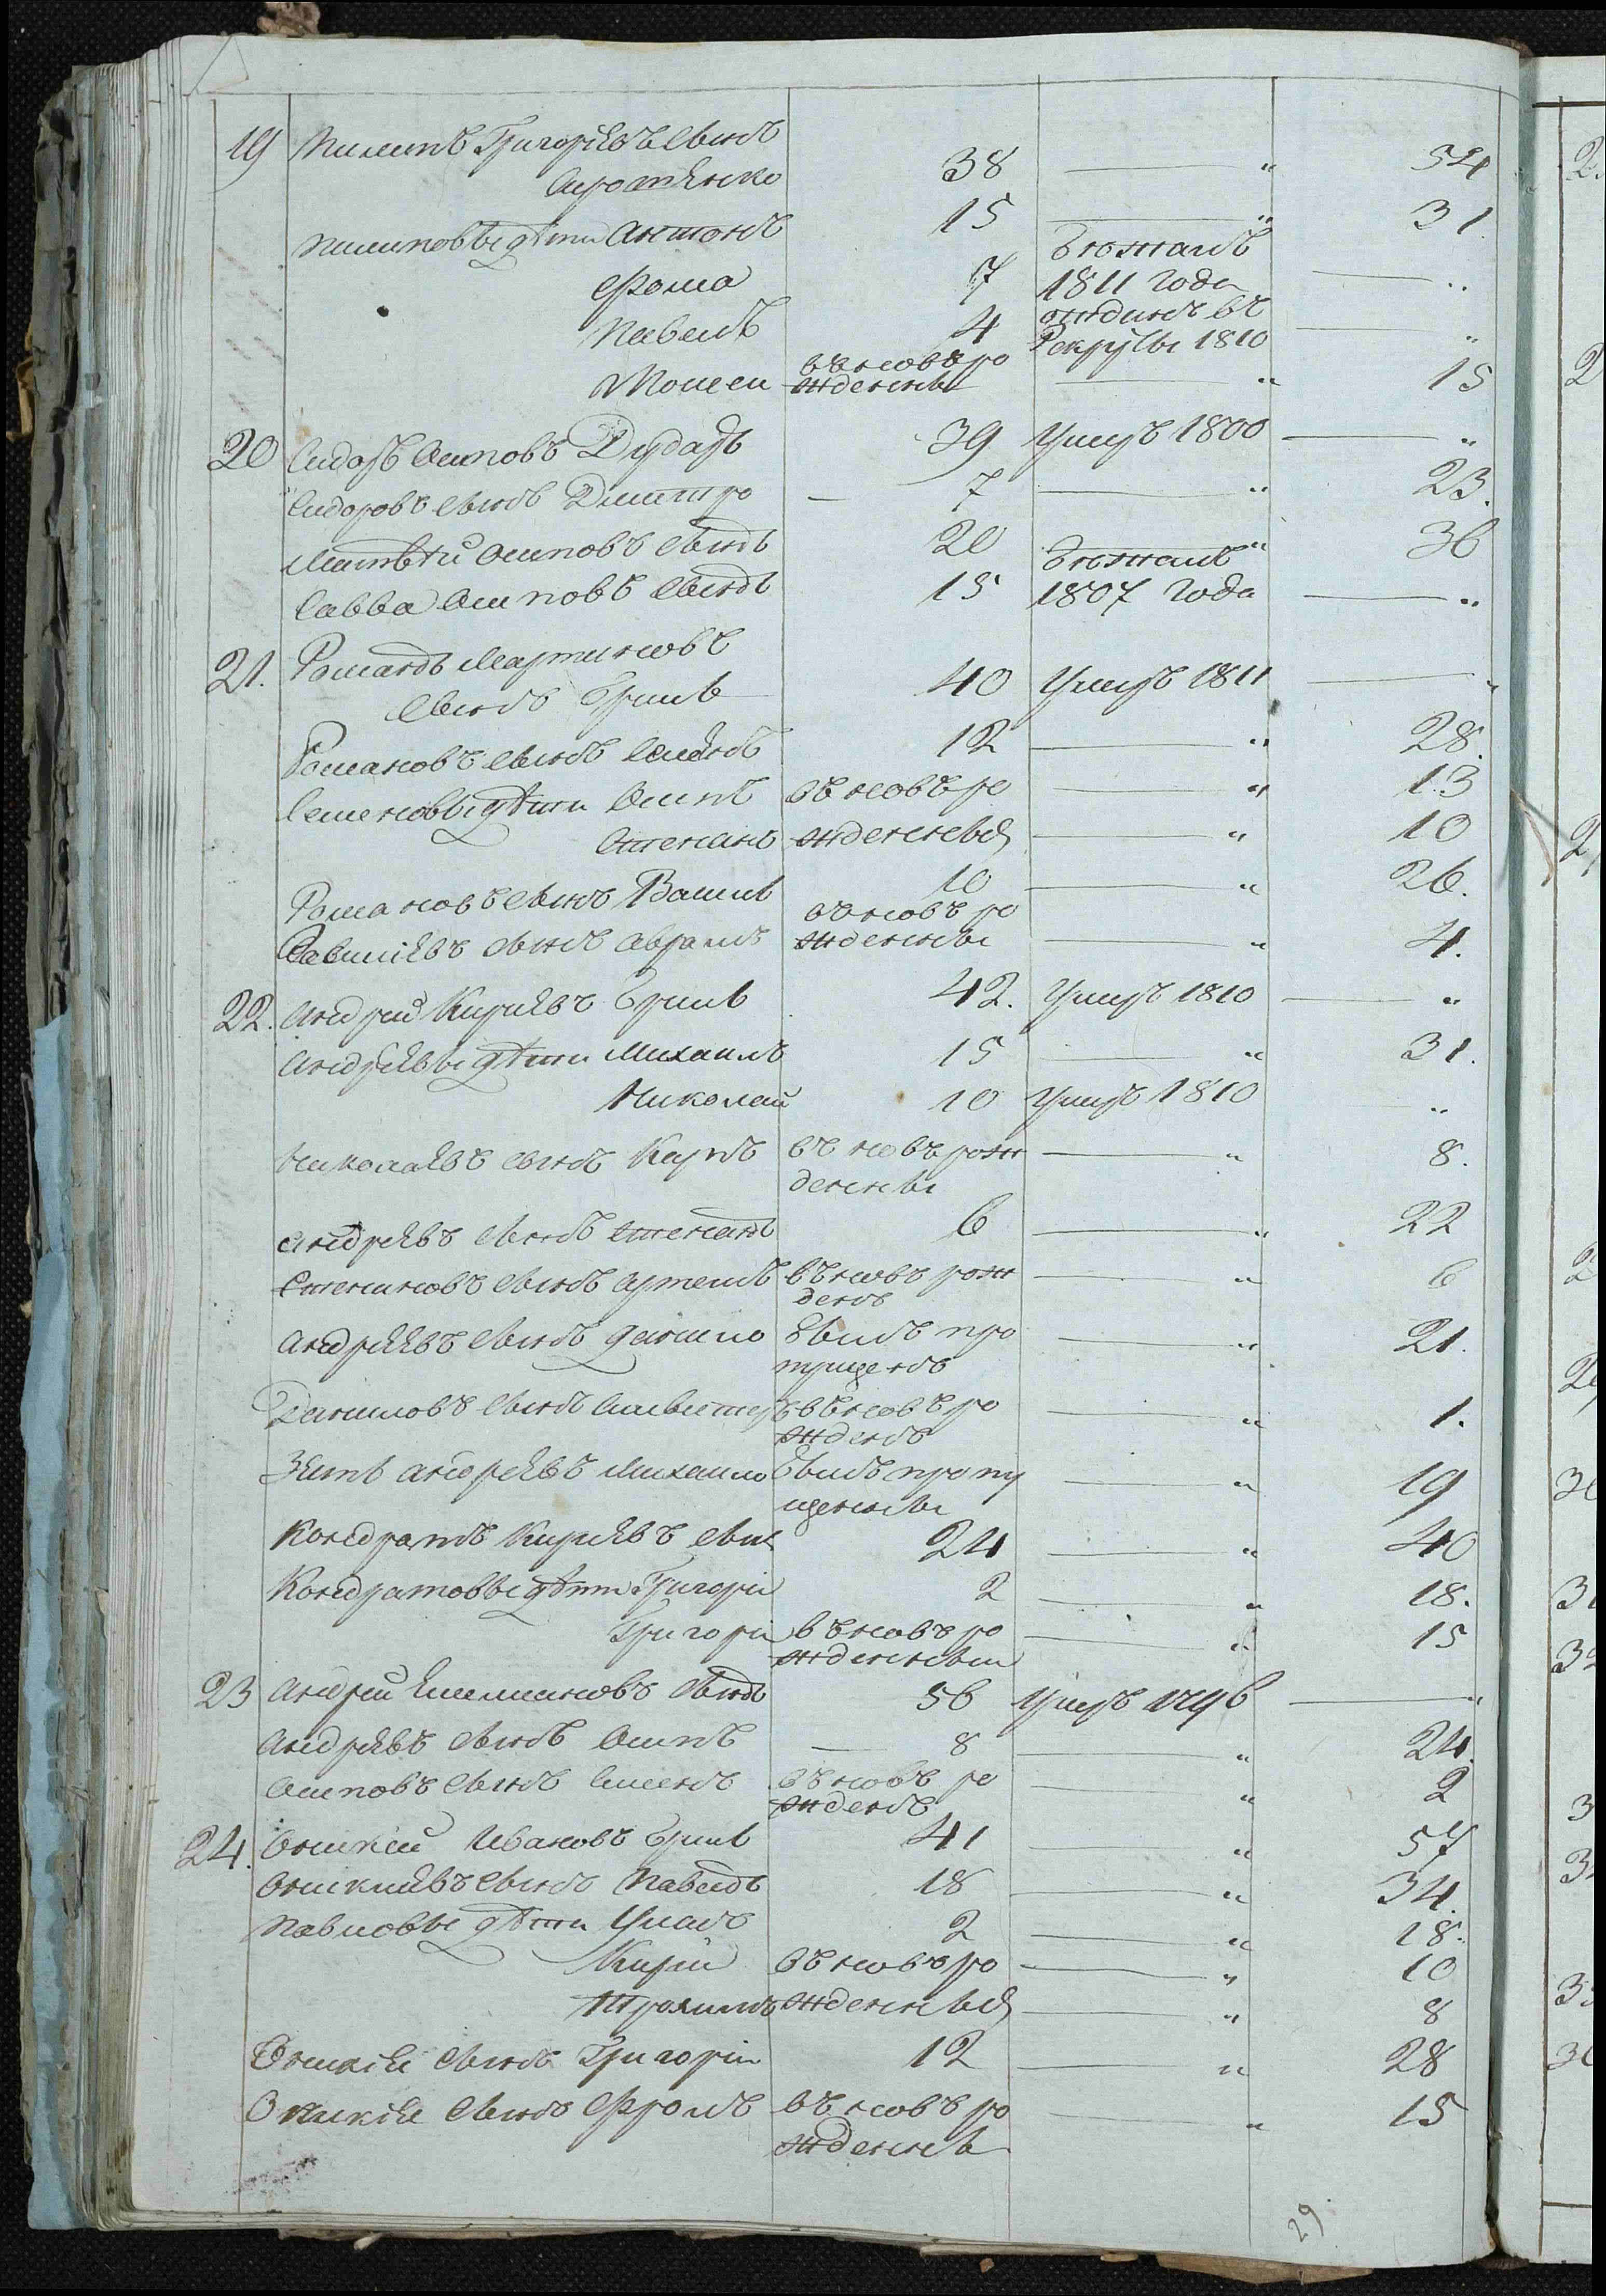 19 Пилипъ Григорьевъ сынъ
Сиротенко 38 — " 54
Пилиповы дѣти Антонъ 15 — " 31
Фома 7 Бежалъ 1811 года — "
Павелъ 4 отданъ въ Рекруты 1810 — "
Моисей въ новѣ рожденны — " 15
20 Сидоръ Осиповъ Дударь 39 Умеръ 1800 — "
Сидоровъ сынъ Дмитро — 7 — " 23.
Матвѣй Осиповъ сынъ 20 — " 36
Савва Осиповъ сынъ 15 Бежалъ 1807 Года — "
21. Романъ Мартиновъ
сынъ Гриль 40 Умеръ 1811 — "
Романовъ сынъ Семенъ 12 — " 28.
Семеновы дѣти Осипъ въ новѣ ро — " 13
Степанъ жденныя — " 10
Романовъ сынъ Василь 10 — " 26.
Василіевъ сынъ Аврамъ въ новѣ рожденны — " 4.
22. Андрей Киріевъ Гриль 42. Умеръ 1810 — "
Андреевы дѣти Михаилъ 15 — " 31.
Николай 10 Умеръ 1810 "
Николаевъ сынъ Карпъ въ новѣ рожденны — " 8.
Андреевъ сынъ Степанъ 6 — " 22
Степановъ сынъ Артемъ въ новѣ рожденъ — " 6
Андреевъ сынъ Данило былъ пропущенъ — " 21.
Даниловъ сынъ Силвестеръ въ новѣ рожденъ — " 1.
Зять Андреевъ Михаило былъ пропущенны — " 19
Кондратъ Киріевъ сынъ 24 — " 40
Кондратовы дѣти Григорій 2 — " 18.
Григорій въ новѣ рожденный — " 15
23 Андрей Емельяновъ сынъ 56 Умеръ 1796 — "
Андреевъ сынъ Осипъ — 8 — " 24.
Осиповъ сынъ Симонъ въ новѣ рожденъ — " 2
24. Оникій Ивановъ Гриль 41 — " 57
Оникіевъ сынъ Павелъ 18 — " 34.
Павловы дѣти Уласъ 2 — " 18.
Кирій въ новѣ ро — " 10
Трохимъ жденныя — " 8
Оникіе сынъ Григорій 12 — " 28
Оникіе сынъ Фролъ въ новѣ рожденны — " 15
29.